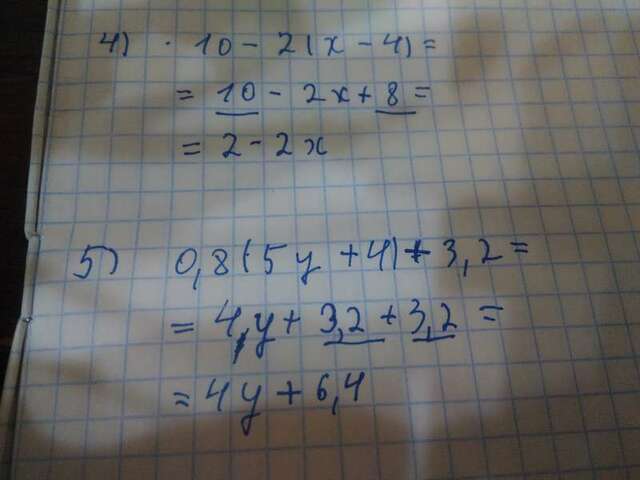 4) · 10 - 2(x - 4) =
= 10 - 2x + 8 =
= 2 - 2x
5) 0,8(5y + 4) + 3,2 =
= 4,y + 3,2 + 3,2 =
= 4y + 6,4